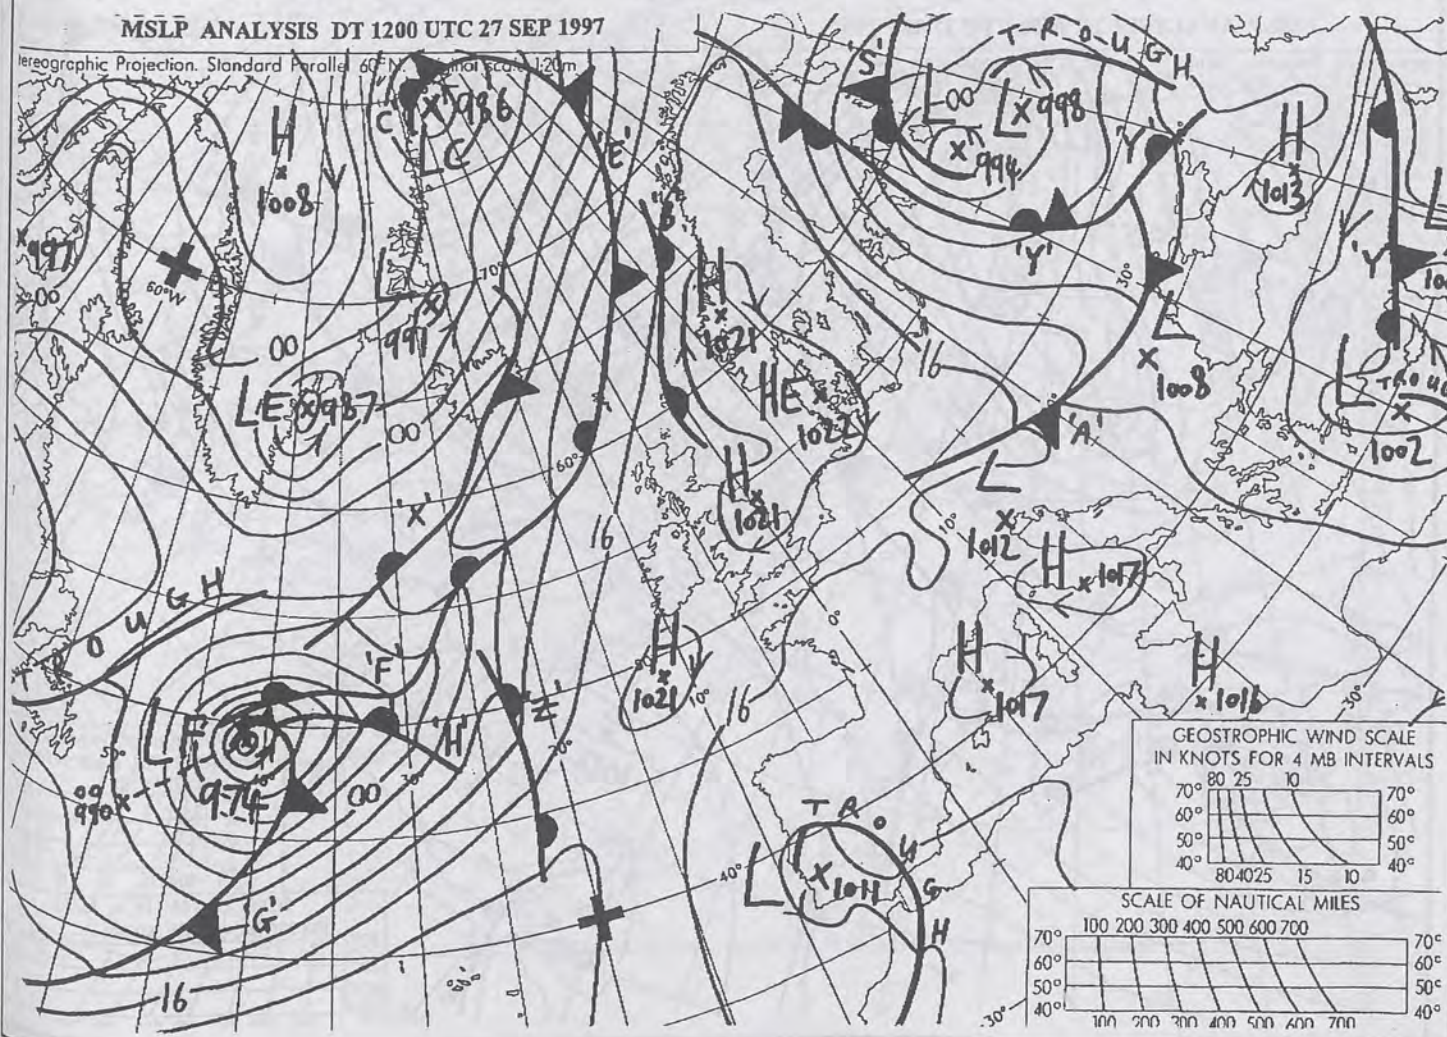 MSLP ANALYSIS DT 1200 UTC 27 SEP 1997
tereographic Projection. Standard Parallel 60°N. Original scale 1:20m
H
1008
'C'
X 986
L C
'E'
'B'
'S'
T-R-O-U-G H
L 00
X 994
L X 998
'Y'
H
1013
997
00
60°W
L
X
991
70°
H
1021
'Y'
30°
'Y'
L
00
L E X 987
00
HE
1022
16
L
X
1008
L
TROU
X
1002
60°
'A'
'X'
H
1021
L
X
1012
10°
H
X 1017
16
0°
T R O U G H
'F'
H
1021
10°
16
H
1017
H
1016
30°
'Z'
20°
L F
'H'
30°
50°
40°
974
00
990
00
'G'
16
T R O U G H
L
X 1011
40°
30°
GEOSTROPHIC WIND SCALE
IN KNOTS FOR 4 MB INTERVALS
80 25 10
70° 70°
60° 60°
50° 50°
40° 40°
80 40 25 15 10
SCALE OF NAUTICAL MILES
100 200 300 400 500 600 700
70° 70°
60° 60°
50° 50°
40° 40°
100 200 300 400 500 600 700